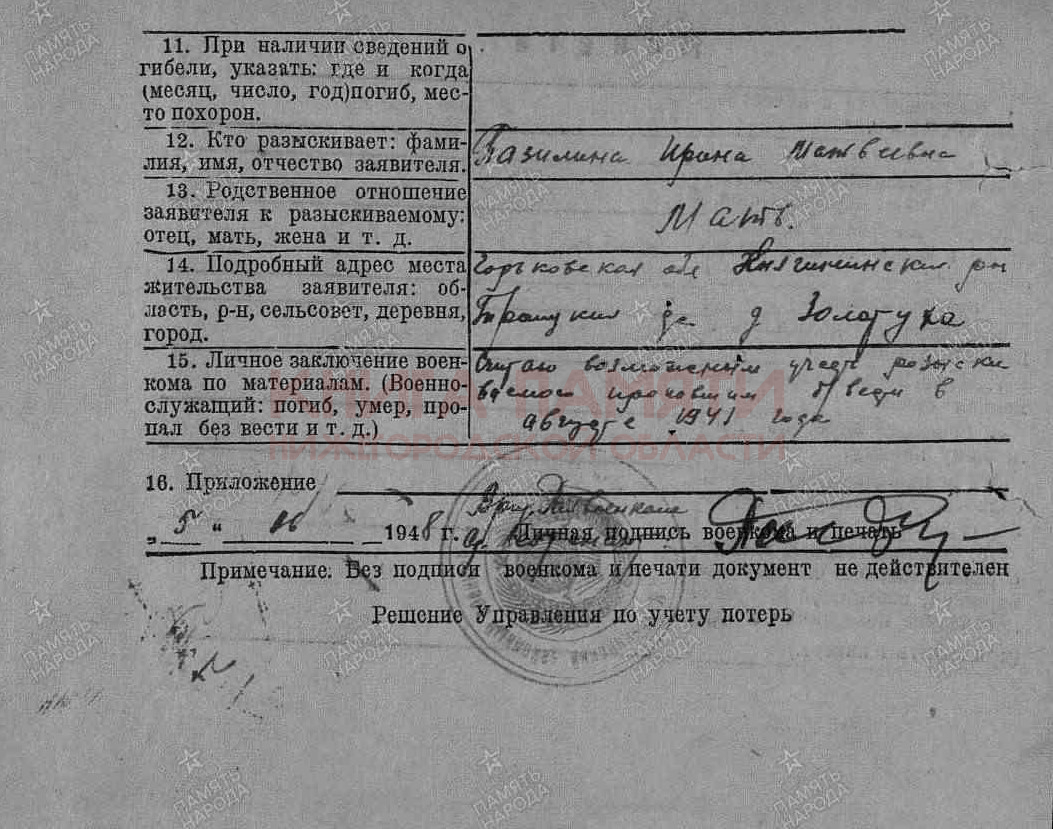 11. При наличии сведений о
гибели, указать: где и когда
(месяц, число, год)погиб, мес-
то похорон.
12. Кто разыскивает: фами-
лия, имя, отчество заявителя.
Пазилина Ирина Матвеевна
13. Родственное отношение
заявителя к разыскиваемому:
отец, мать, жена и т. д.
Мать.
14. Подробный адрес места
жительства заявителя: об-
ласть, р-н, сельсовет, деревня,
город.
Горьковская обл Княгининский рн
д Золотуха
15. Личное заключение воен-
кома по материалам. (Военно-
служащий: погиб, умер, про-
пал без вести и т. д.)
Считаю возможным учесть разыски
ваемого пропавшим б/вести в
августе 1941 года
КНИГА ПАМЯТИ
НИЖЕГОРОДСКОЙ ОБЛАСТИ
16. Приложение
„ 5 “ 1948 г.
Личная подпись военкома и печать
Примечание. Без подписи военкома и печати документ не действителен
Решение Управления по учету потерь
ПАМЯТЬ
НАРОДА